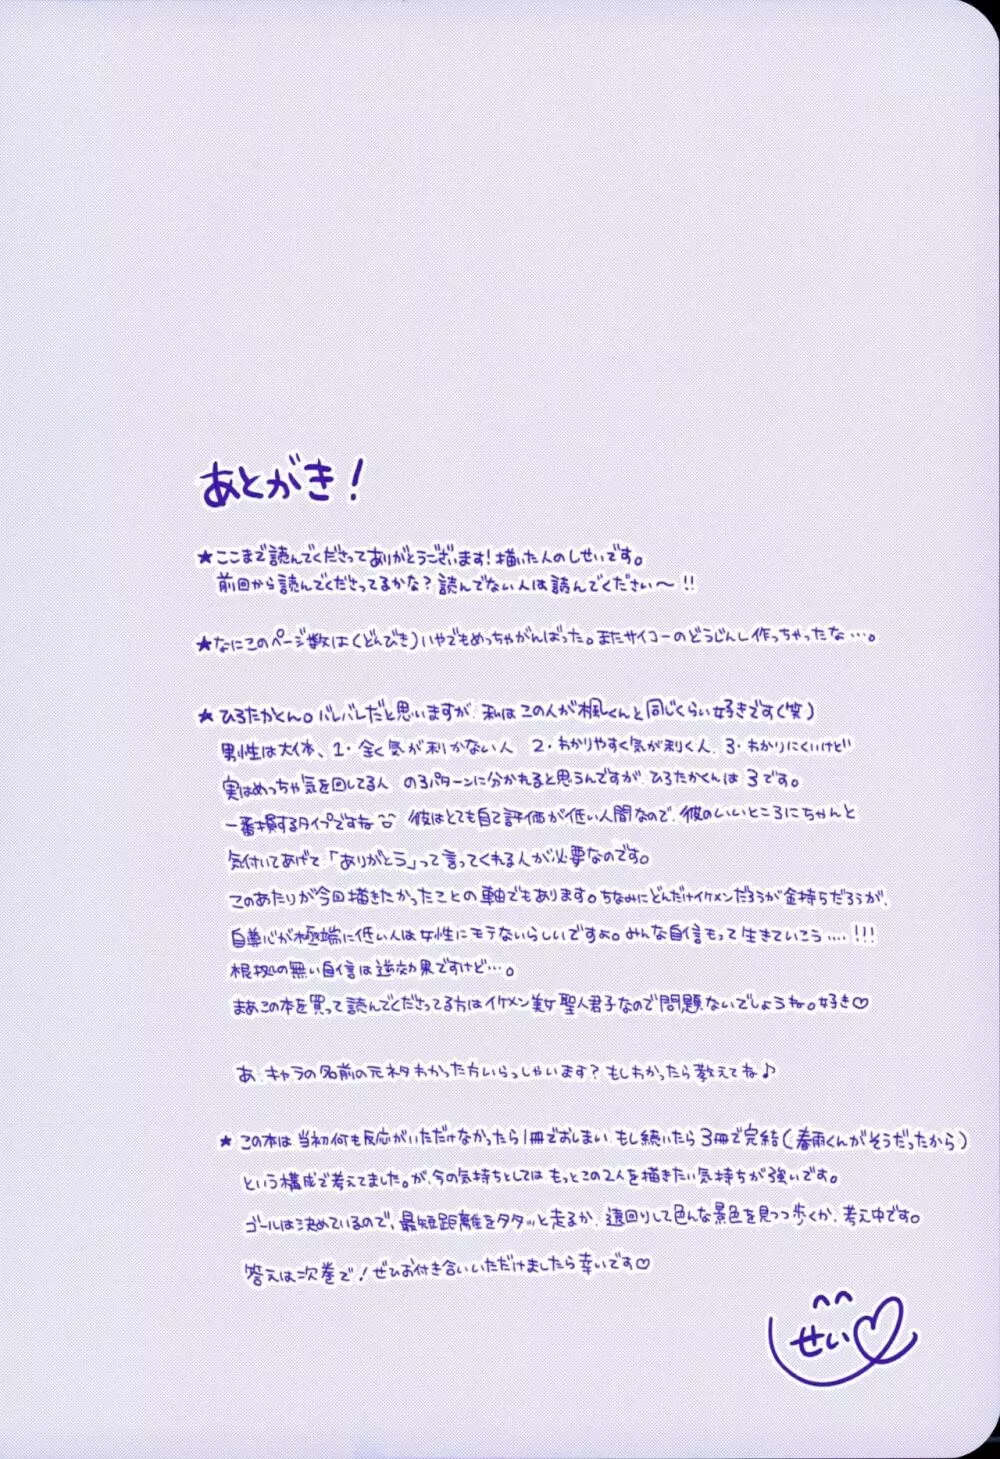 あとがき！
★ここまで読んでくださってありがとうございます！描いた人のしせいです。
前回から読んでくださってるかな？読んでない人は読んでください〜!!
★なにこのページ数は(どんびき)いやでもめっちゃがんばった。またサイコーのどうじんし作っちゃったな…。
★ひろたかくん。バレバレだと思いますが、私はこの人が楓くんと同じくらい好きです(笑)
男性は大体、1・全く気が利かない人 2・わかりやすく気が利く人、3・わかりにくいけど
実はめっちゃ気を回してる人 の3パターンに分かれると思うんですが、ひろたかくんは3です。
一番損するタイプですね 彼はとても自己評価が低い人間なので、彼のいいところにちゃんと
気付いてあげて「ありがとう」って言ってくれる人が必要なのです。
このあたりが今回描きたかったことの軸でもあります。ちなみにどんだけイケメンだろうが金持ちだろうが、
自尊心が極端に低い人は女性にモテないらしいですよ。みんな自信もって生きていこう….!!!
根拠の無い自信は逆効果ですけど…。
まあこの本を買って読んでくださってる方はイケメン美女聖人君子なので問題ないでしょうね。好き♡
あ、キャラの名前の元ネタわかった方いらっしゃいます？もしわかったら教えてね♪
★この本は当初何も反応がいただけなかったら1冊でおしまい、もし続いたら3冊で完結(春雨くんがそうだったから)
という構成で考えてました。が、今の気持ちとしてはもっとこの2人を描きたい気持ちが強いです。
ゴールは決めているので、最短距離をタタッと走るか、遠回りして色んな景色を見つつ歩くか、考え中です。
答えは次巻で！ぜひお付き合いいただけましたら幸いです♡
せい♡